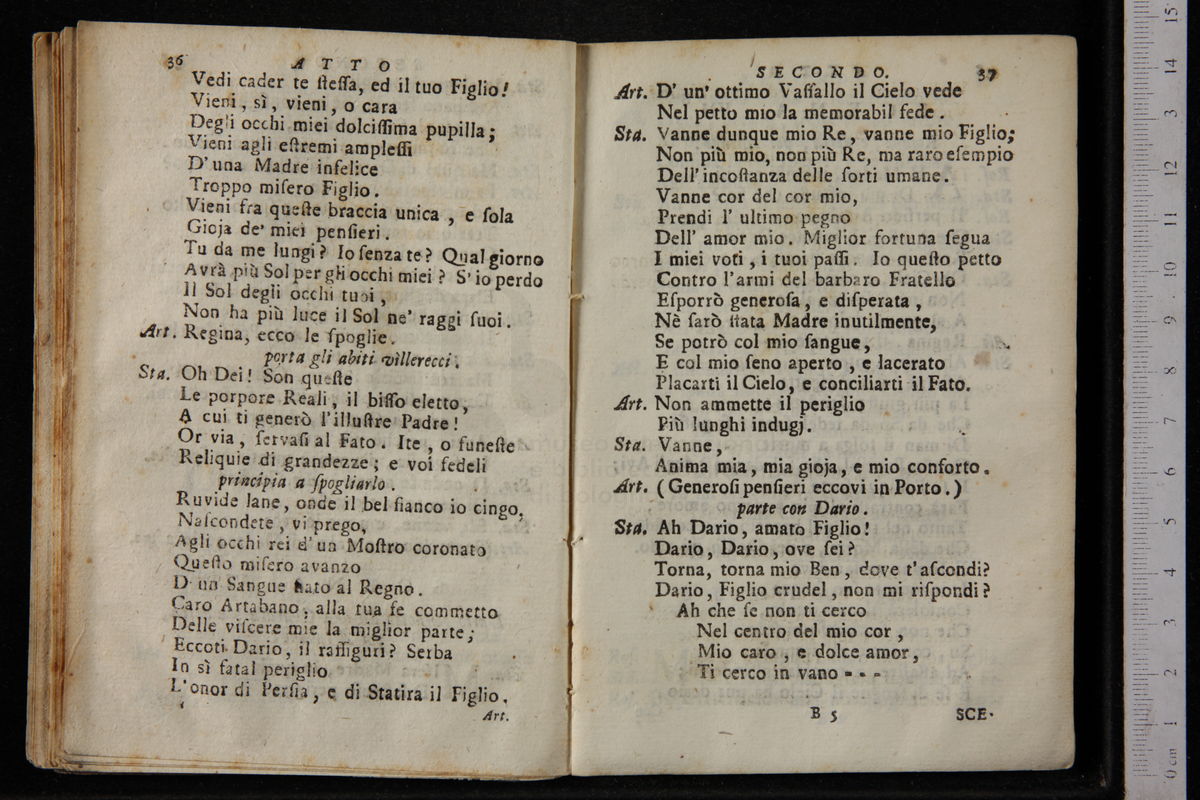 36 ATTO
Vedi cader te ſteſſa, ed il tuo Figlio!
Vieni, sì, vieni, o cara
Degli occhi miei dolciſſima pupilla;
Vieni agli eſtremi ampleſſi
D'una Madre infelice
Troppo miſero Figlio.
Vieni fra queſte braccia unica, e ſola
Gioja de' miei penſieri.
Tu da me lungi? Io ſenza te? Qual giorno
Avrà più Sol per gli occhi miei? S'io perdo
Il Sol degli occhi tuoi,
Non ha più luce il Sol ne' raggi ſuoi.
Art. Regina, ecco le ſpoglie.
porta gli abiti villerecci.
Sta. Oh Dei! Son queſte
Le porpore Reali, il biſſo eletto,
A cui ti generò l'illuſtre Padre!
Or via, ſervaſi al Fato. Ite, o funeſte
Reliquie di grandezze; e voi fedeli
principia a ſpogliarlo.
Ruvide lane, onde il bel fianco io cingo,
Naſcondete, vi prego,
Agli occhi rei d'un Moſtro coronato
Queſto miſero avanzo
D'un Sangue nato al Regno.
Caro Artabano, alla tua fe commetto
Delle viſcere mie la miglior parte;
Eccoti Dario, il raffiguri? Serba
In sì fatal periglio
L'onor di Perſia, e di Statira il Figlio.
Art.
SECONDO. 37
Art. D' un' ottimo Vaſſallo il Cielo vede
Nel petto mio la memorabil fede.
Sta. Vanne dunque mio Re, vanne mio Figlio;
Non più mio, non più Re, ma raro eſempio
Dell' incoſtanza delle ſorti umane.
Vanne cor del cor mio,
Prendi l' ultimo pegno
Dell' amor mio. Miglior fortuna ſegua
I miei voti, i tuoi paſſi. Io queſto petto
Contro l'armi del barbaro Fratello
Eſporrò generoſa, e diſperata,
Nè ſarò ſtata Madre inutilmente,
Se potrò col mio ſangue,
E col mio ſeno aperto, e lacerato
Placarti il Cielo, e conciliarti il Fato.
Art. Non ammette il periglio
Più lunghi indugj.
Sta. Vanne,
Anima mia, mia gioja, e mio conforto.
Art. (Generoſi penſieri eccovi in Porto.)
parte con Dario.
Sta. Ah Dario, amato Figlio!
Dario, Dario, ove ſei?
Torna, torna mio Ben, dove t'aſcondi?
Dario, Figlio crudel, non mi riſpondi?
Ah che ſe non ti cerco
Nel centro del mio cor,
Mio caro, e dolce amor,
Ti cerco in vano - - -
B 5 SCE-